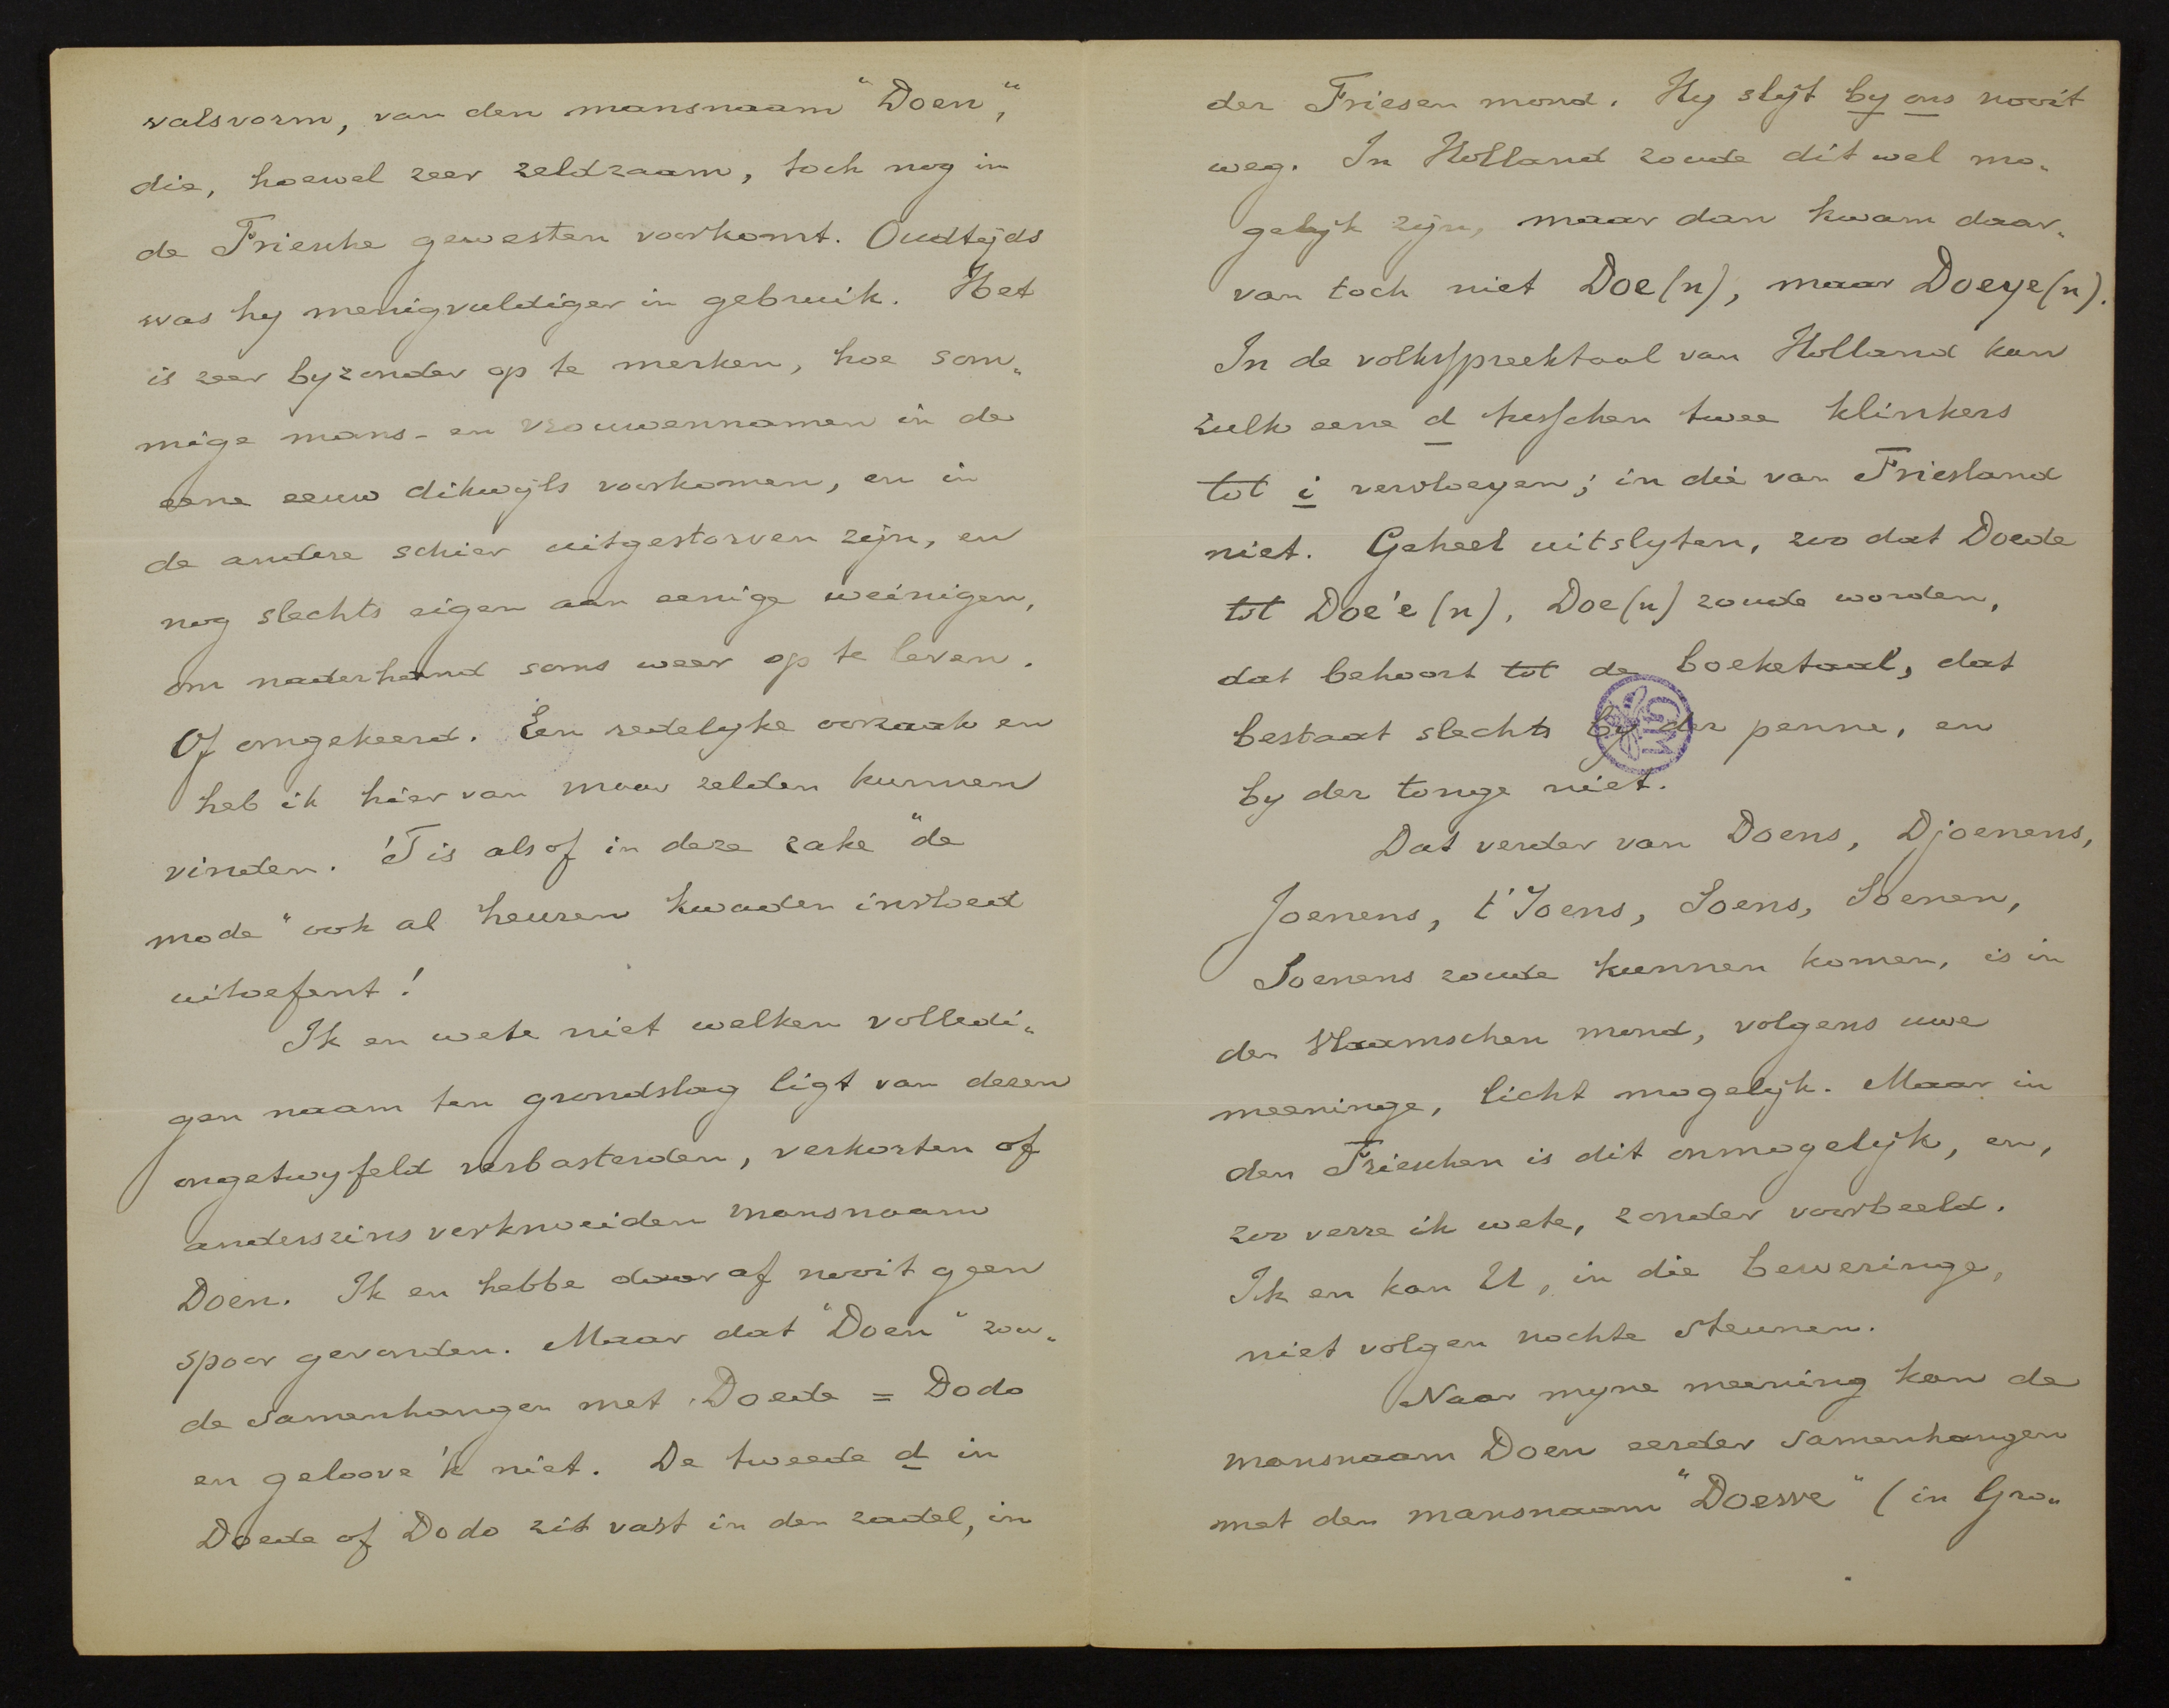 valsvorm, van den mansnaam "Doen",
die, hoewel zeer zeldzaam, toch nog in
de Friesche gewesten voorkomt. Oudtyds
was hy menigvuldiger in gebruik. Het
is zeer byzonder op te merken, hoe som„
mige mans- en vrouwennamen in de
eene eeuw dikwyls voorkomen, en in
de andere schier uitgestorven zijn, en
nog slechts eigen aan eenige weinigen,
om naderhand soms weer op te leven.
Of omgekeerd. Een redelyke oorzaak en
heb ik hier van maar zelden kunnen
vinden. 'T is alsof in deze zake "de
mode" ook al heuren kwaden invloed
uitoefent!
Ik en wete niet welken volledi„
gen naam ten grondslag ligt van dezen
ongetwyfeld verbasterden, verkorten of
anderszins verknoeiden mansnaam
Doen. Ik en hebbe daar af nooit geen
spoor gevonden. Maar dat "Doen" zou„
de samenhangen met Doede = Dodo
en geloove 'k niet. De tweede d in
Doede of Dodo zit vast in den zadel, in
der Friesen mond. Hy slyt by ons nooit
weg. In Holland zoude dit wel mo„
gelyk zijn, maar dan kwam daar„
van toch niet Doe(n), maar Doeye(n).
In de volksspreektaal van Holland kan
zulk eene d tusschen twee klinkers
tot i vervloeyen; in die van Friesland
niet. Geheel uitslyten, zoo dat Doede
tot Doe'e(n), Doe(n) zoude worden,
dat behoort tot de boeketaal, dat
bestaat slechts by der penne, en
by der tonge niet.
Dat verder van Doens, Djoenens,
Joenens, t'Joens, Soens, Soenen,
Soenens zoude kunnen komen, is in
den Vlaamschen mond, volgens uwe
meeninge, licht mogelyk. Maar in
den Frieschen is dit onmogelyk, en,
zoo verre ik wete, zonder voorbeeld.
Ik en kan U, in die beweringe,
niet volgen nochte steunen.
Naar myne meening kan de
mansnaam Doen eerder samenhangen
met den mansnaam "Doewe" (in Gro„
GM